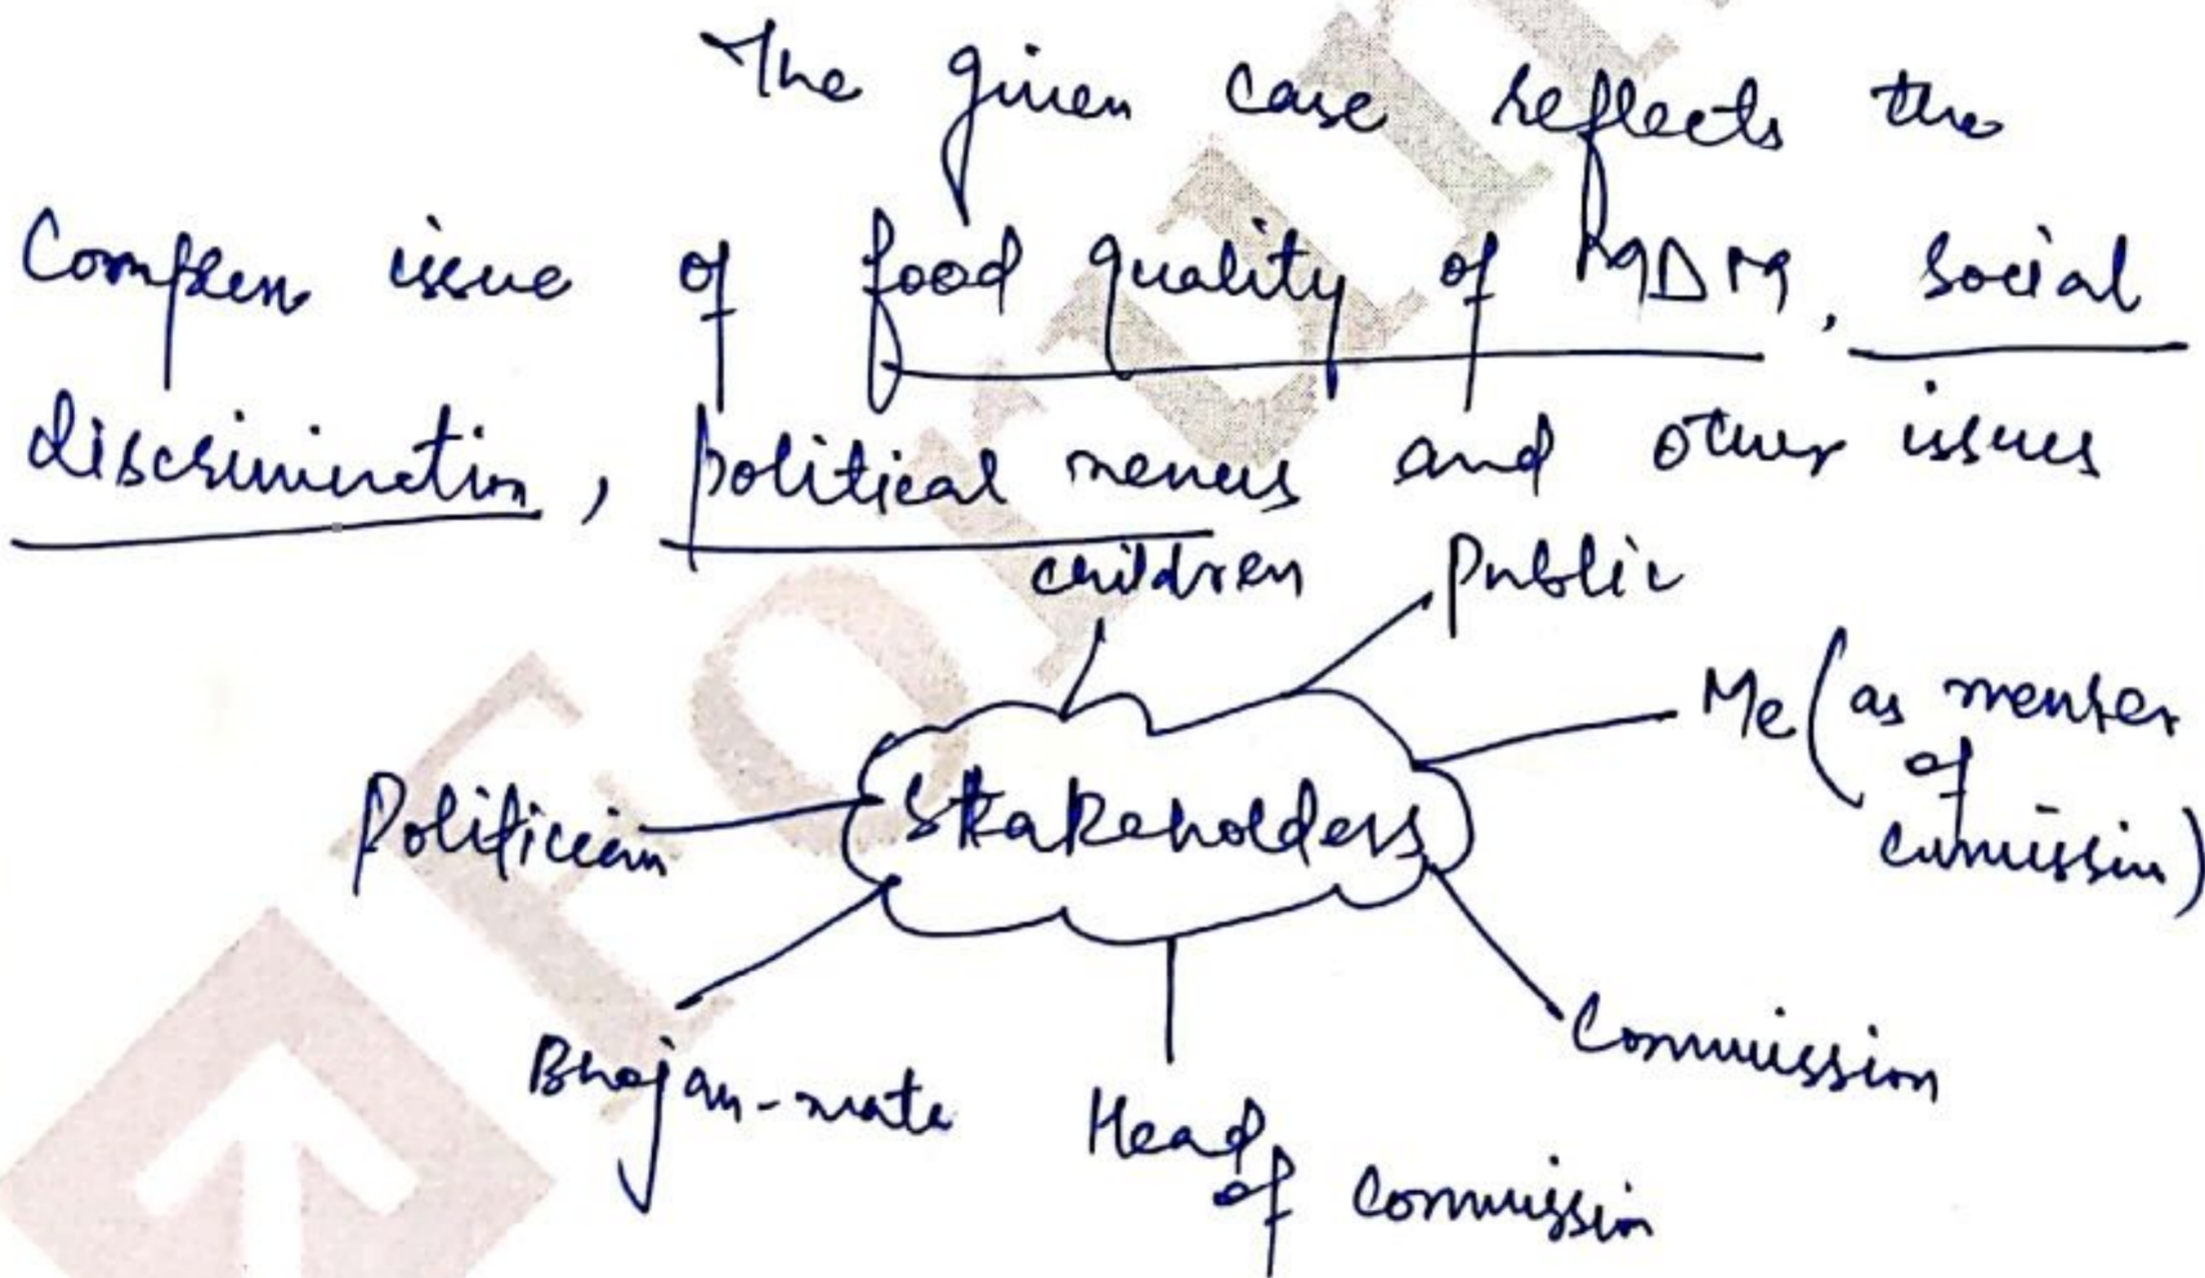 The given case reflects the
Complex issue of food quality of MDM, social
discrimination, political nexus and other issues
children
Public
Me (as member
of
commission)
Politician
Stakeholders
Bhojan-mata
Head
of commission
Commission